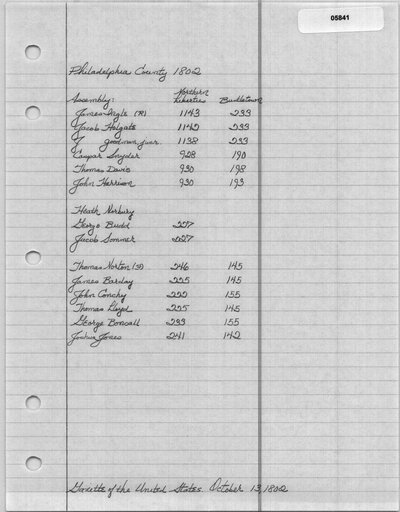 05841
Philadelphia County 1802
Northern
Assembly: Liberties Bustletown
James Engle (R) 1143 233
Jacob Holgate 1142 233
J goodman junr. 1138 233
Caspar Snyder 928 190
Thomas Davis 930 198
John Harrison 930 193
Heath Norbury
George Budd 227
Jacob Sommer 227
Thomas Norton (F) 246 145
James Barclay 225 145
John Conchy 222 155
Thomas Lloyd 225 145
George Boncall 233 155
Joshua Jones 241 142
Gazette of the United States. October 13, 1802